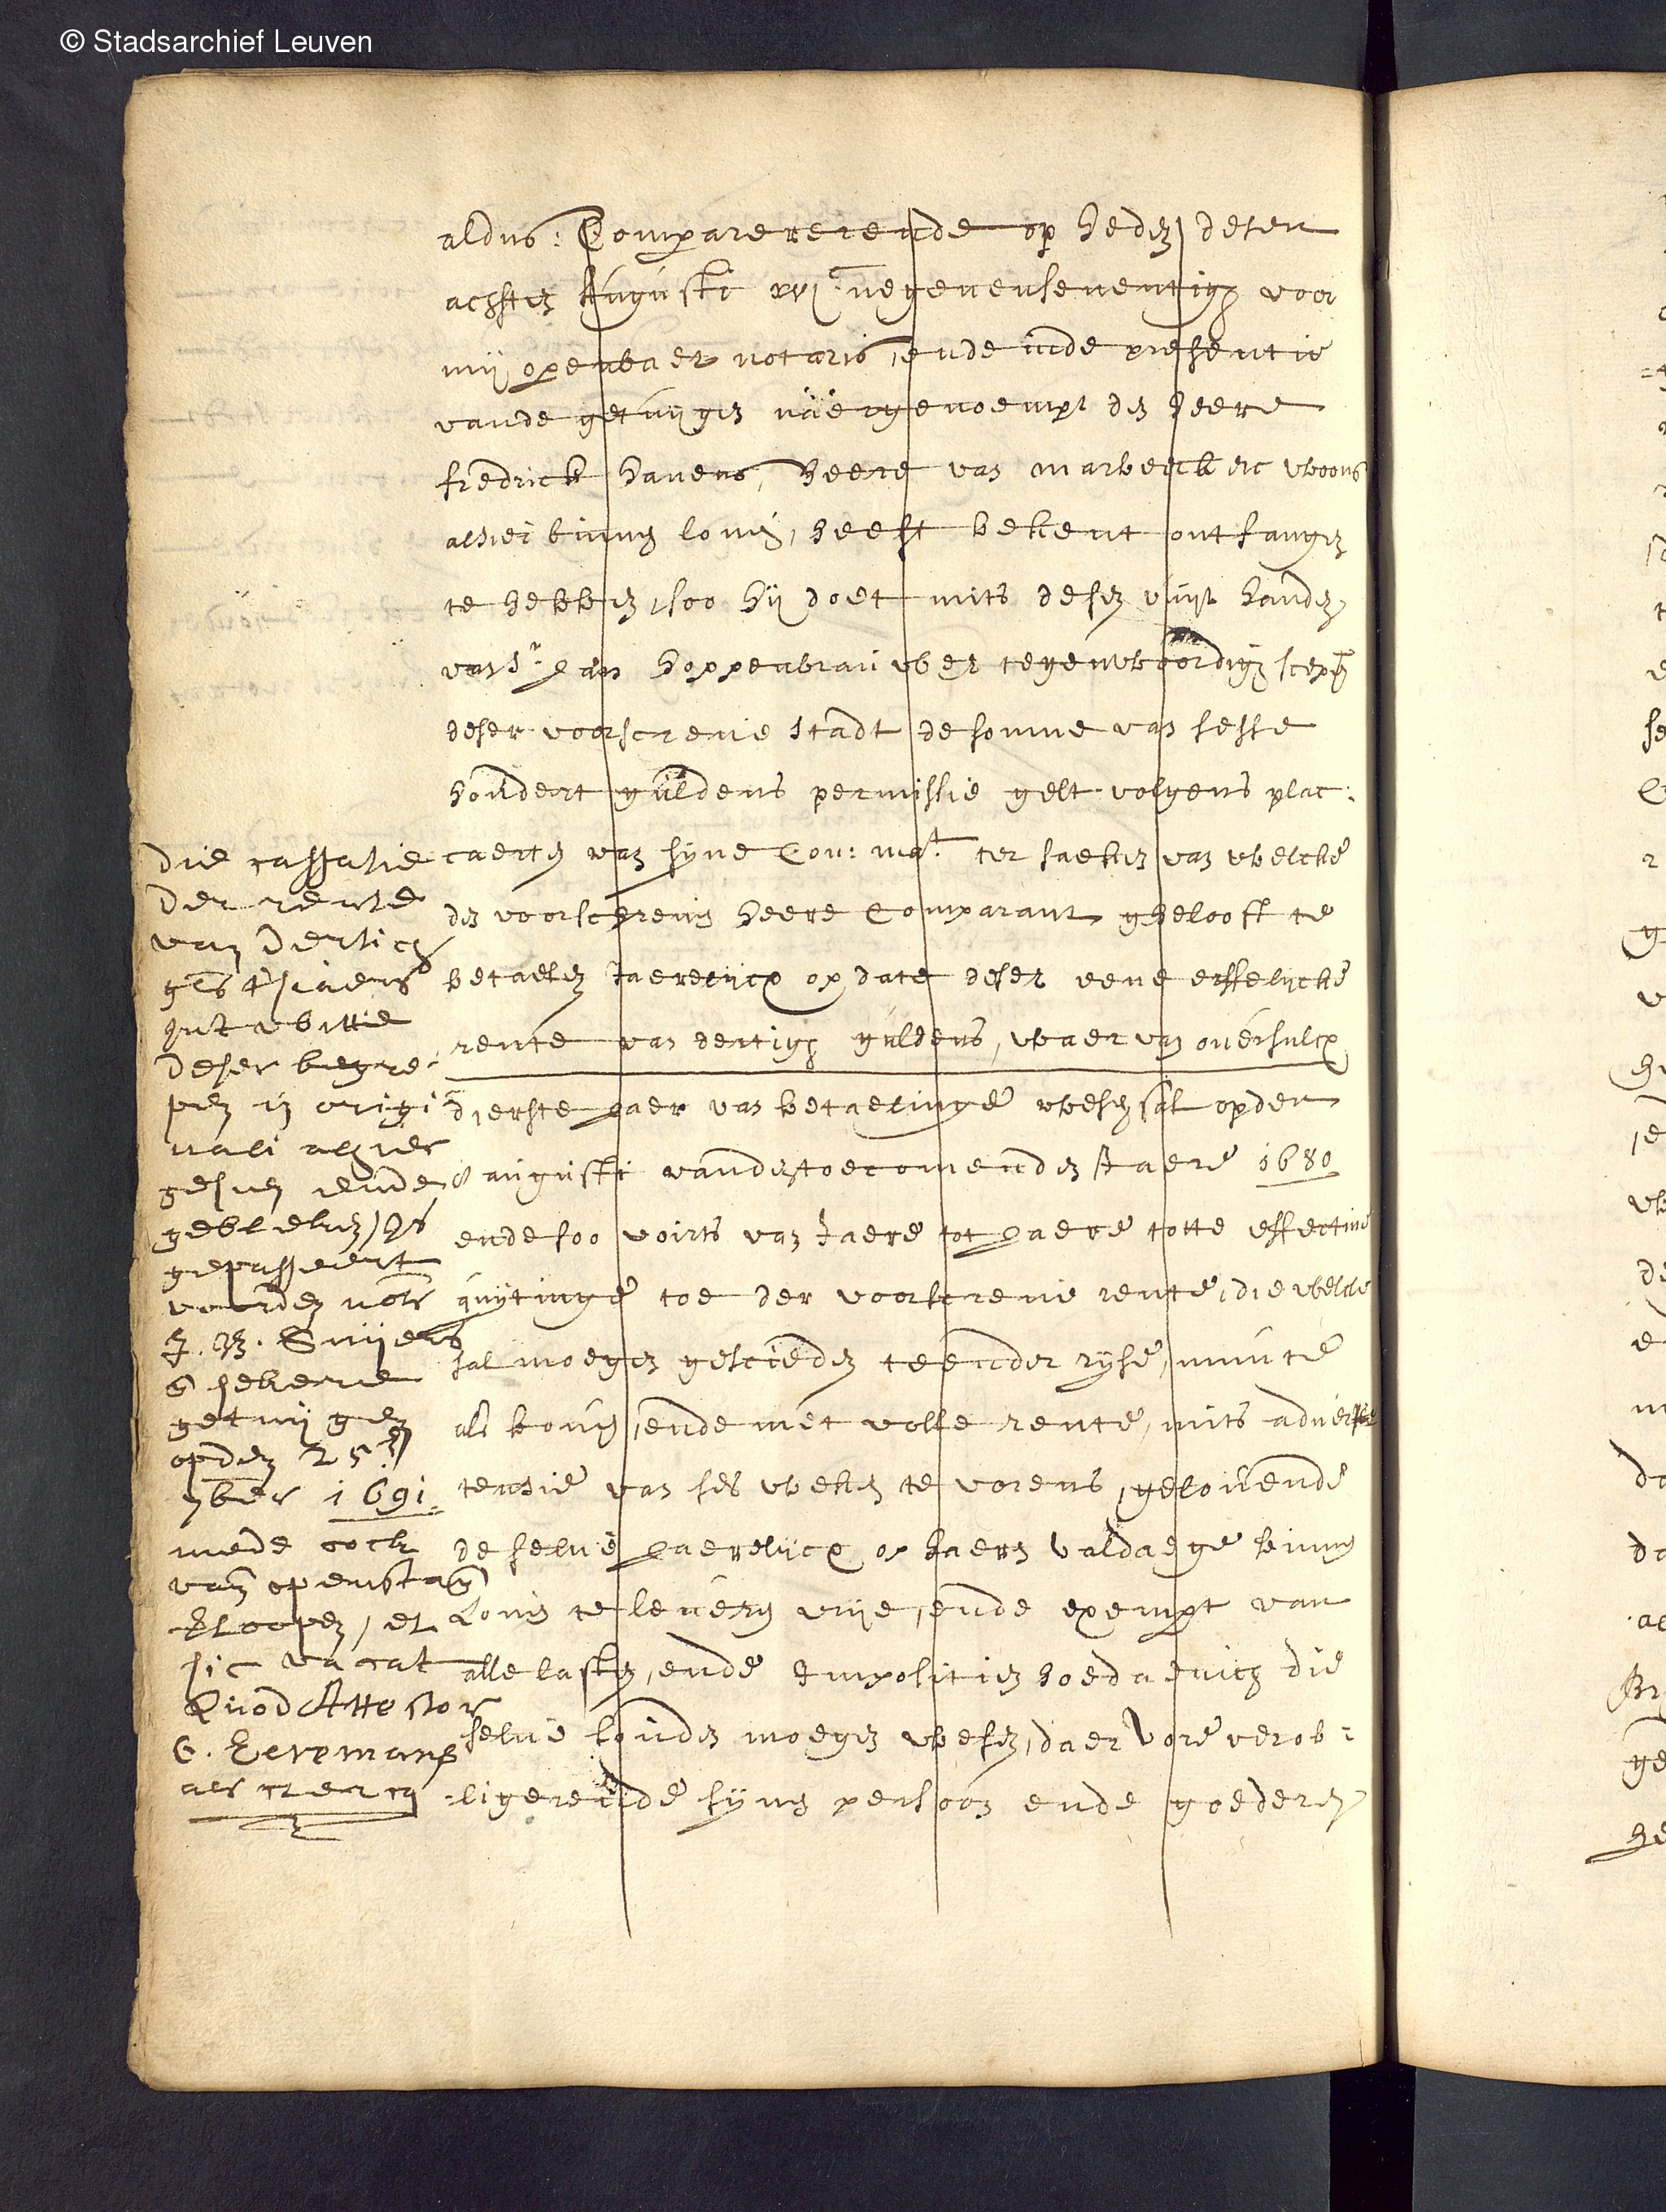 © Stadsarchief Leuven
aldus: Comparererende op heden desen
achsten Augusti xvjc negenenseventigh voor
mij openbaer notaris, ende inde presentie
vande getuijgen naergenoempt den heere
fredrick havens, heere van marbeeck etc woons
alhier binnen loven, heeft bekent ontfangen
te hebben, soo hij doet mits desen vuijt handen
van Sr Jan hoppenbrauwer tegenwoordigh scepen
deser voorscreve stadt de somme van sesse
hondert guldens permissie gelt volgens plac:
caerten van syne Con: mat. ter saeken van welcke
den voorscreven heere Comparant ghelooft te
betaelen Jaerelijcx op date deser eene erffelijcke
rente van dertigh guldens, waer van oversulcx
d'ierste Jaer van betaelinge wesen sal op den
8 augusti vanden toecomenden Jaere 1680
ende soo voirts van Jaere tot Jaere totte effective
quijtinge toe der voorscreve rente, die welcke
sal moegen geschieden teender ryse, munte
als boven, ende met volle rente, mits adver
tensie van ses weken te vorens, gelovende
de selve Jaerelijcx op haeren valdaege binnen
Loven te leveren vrije, ende exempt van
alle lasten, ende Impositien hoedaenich die
selve souden moegen wesen, daer vore verob:
ligerende synen persoon ende goederen
Die cassatie
der rente
van dertich
gls tsiaers
Int witte
deser begre-
pen in origi
nali alhier
gesien ende
gebleken, is
gepasseert
voorden nots
J. B. Snijers
& sekere
getuijgen
opden 25
7ber 1691
mede oock
van openstaen
cloopen, et
sic vacat
Quod Attestor
G. Eeremans
als clercq